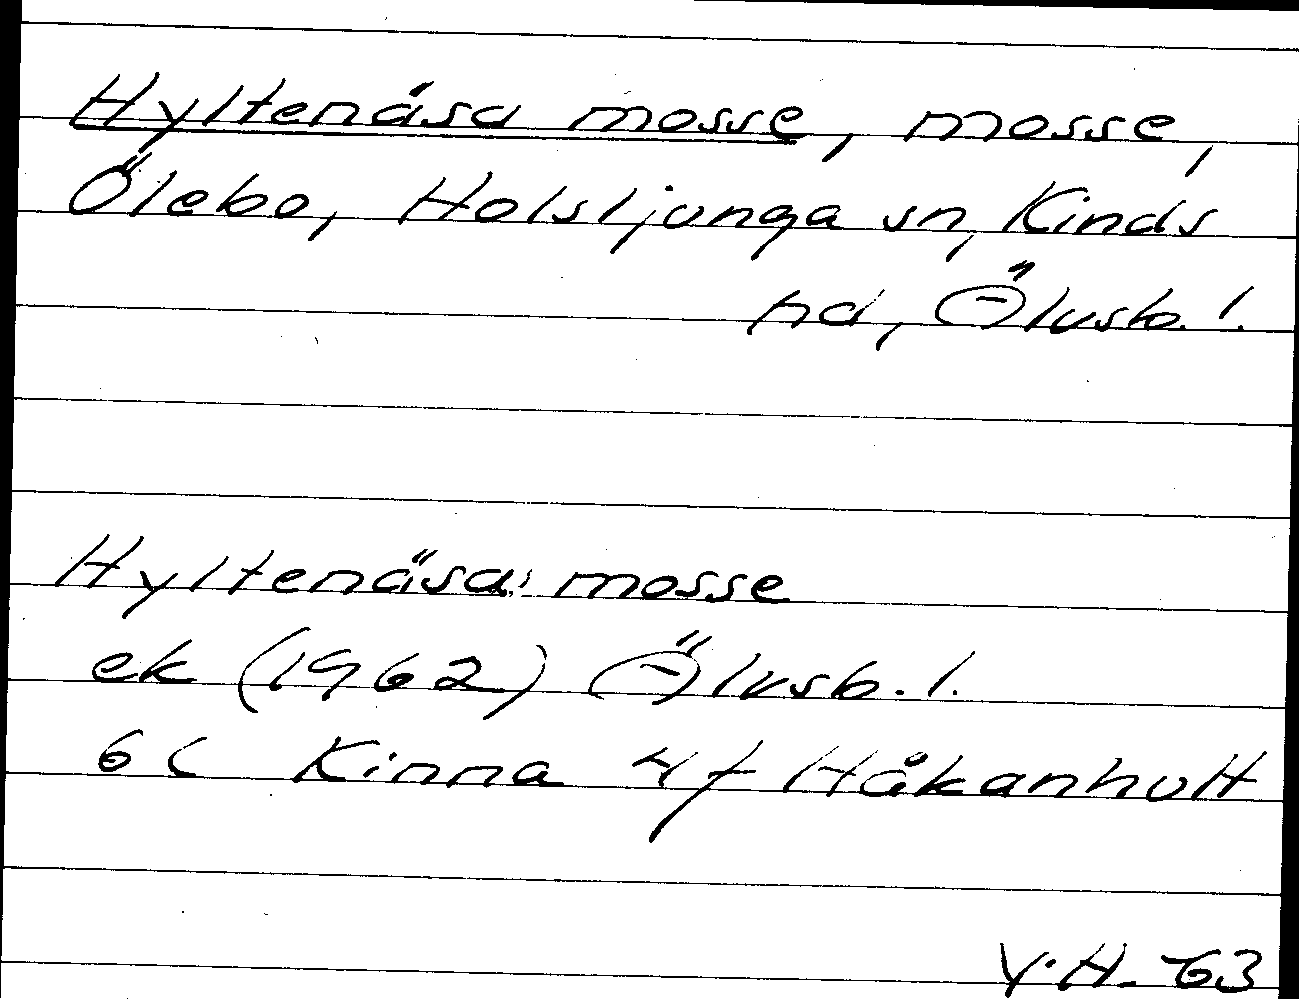 Hyltenäsa mosse, mosse,
Ölebo, Holsljunga sn, Kinds
hd, Älvsb. l.
Hyltenäsa mosse
ek (1962) Älvsb. l.
6 C Kinna 4 f Håkanhult
Y.H. 63